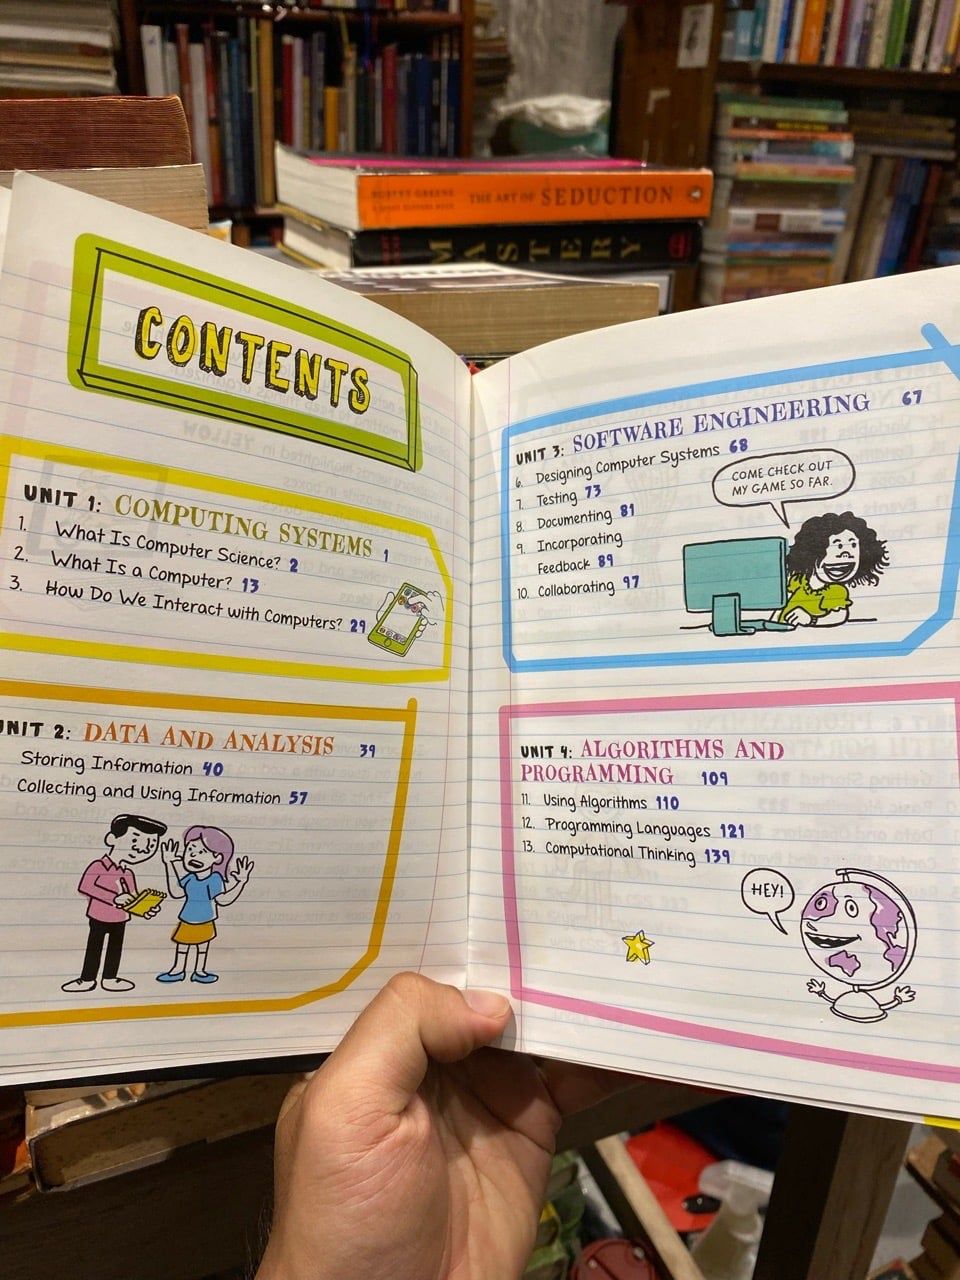 THE ART OF SEDUCTION
MASTERY
CONTENTS
UNIT 1: COMPUTING SYSTEMS 1
1. What Is Computer Science? 2
2. What Is a Computer? 13
3. How Do We Interact with Computers? 29
UNIT 2: DATA AND ANALYSIS 39
Storing Information 40
Collecting and Using Information 57
UNIT 3: SOFTWARE ENGINEERING 67
6. Designing Computer Systems 68
7. Testing 73
8. Documenting 81
9. Incorporating
Feedback 89
10. Collaborating 97
COME CHECK OUT
MY GAME SO FAR.
UNIT 4: ALGORITHMS AND
PROGRAMMING 109
11. Using Algorithms 110
12. Programming Languages 121
13. Computational Thinking 139
HEY!